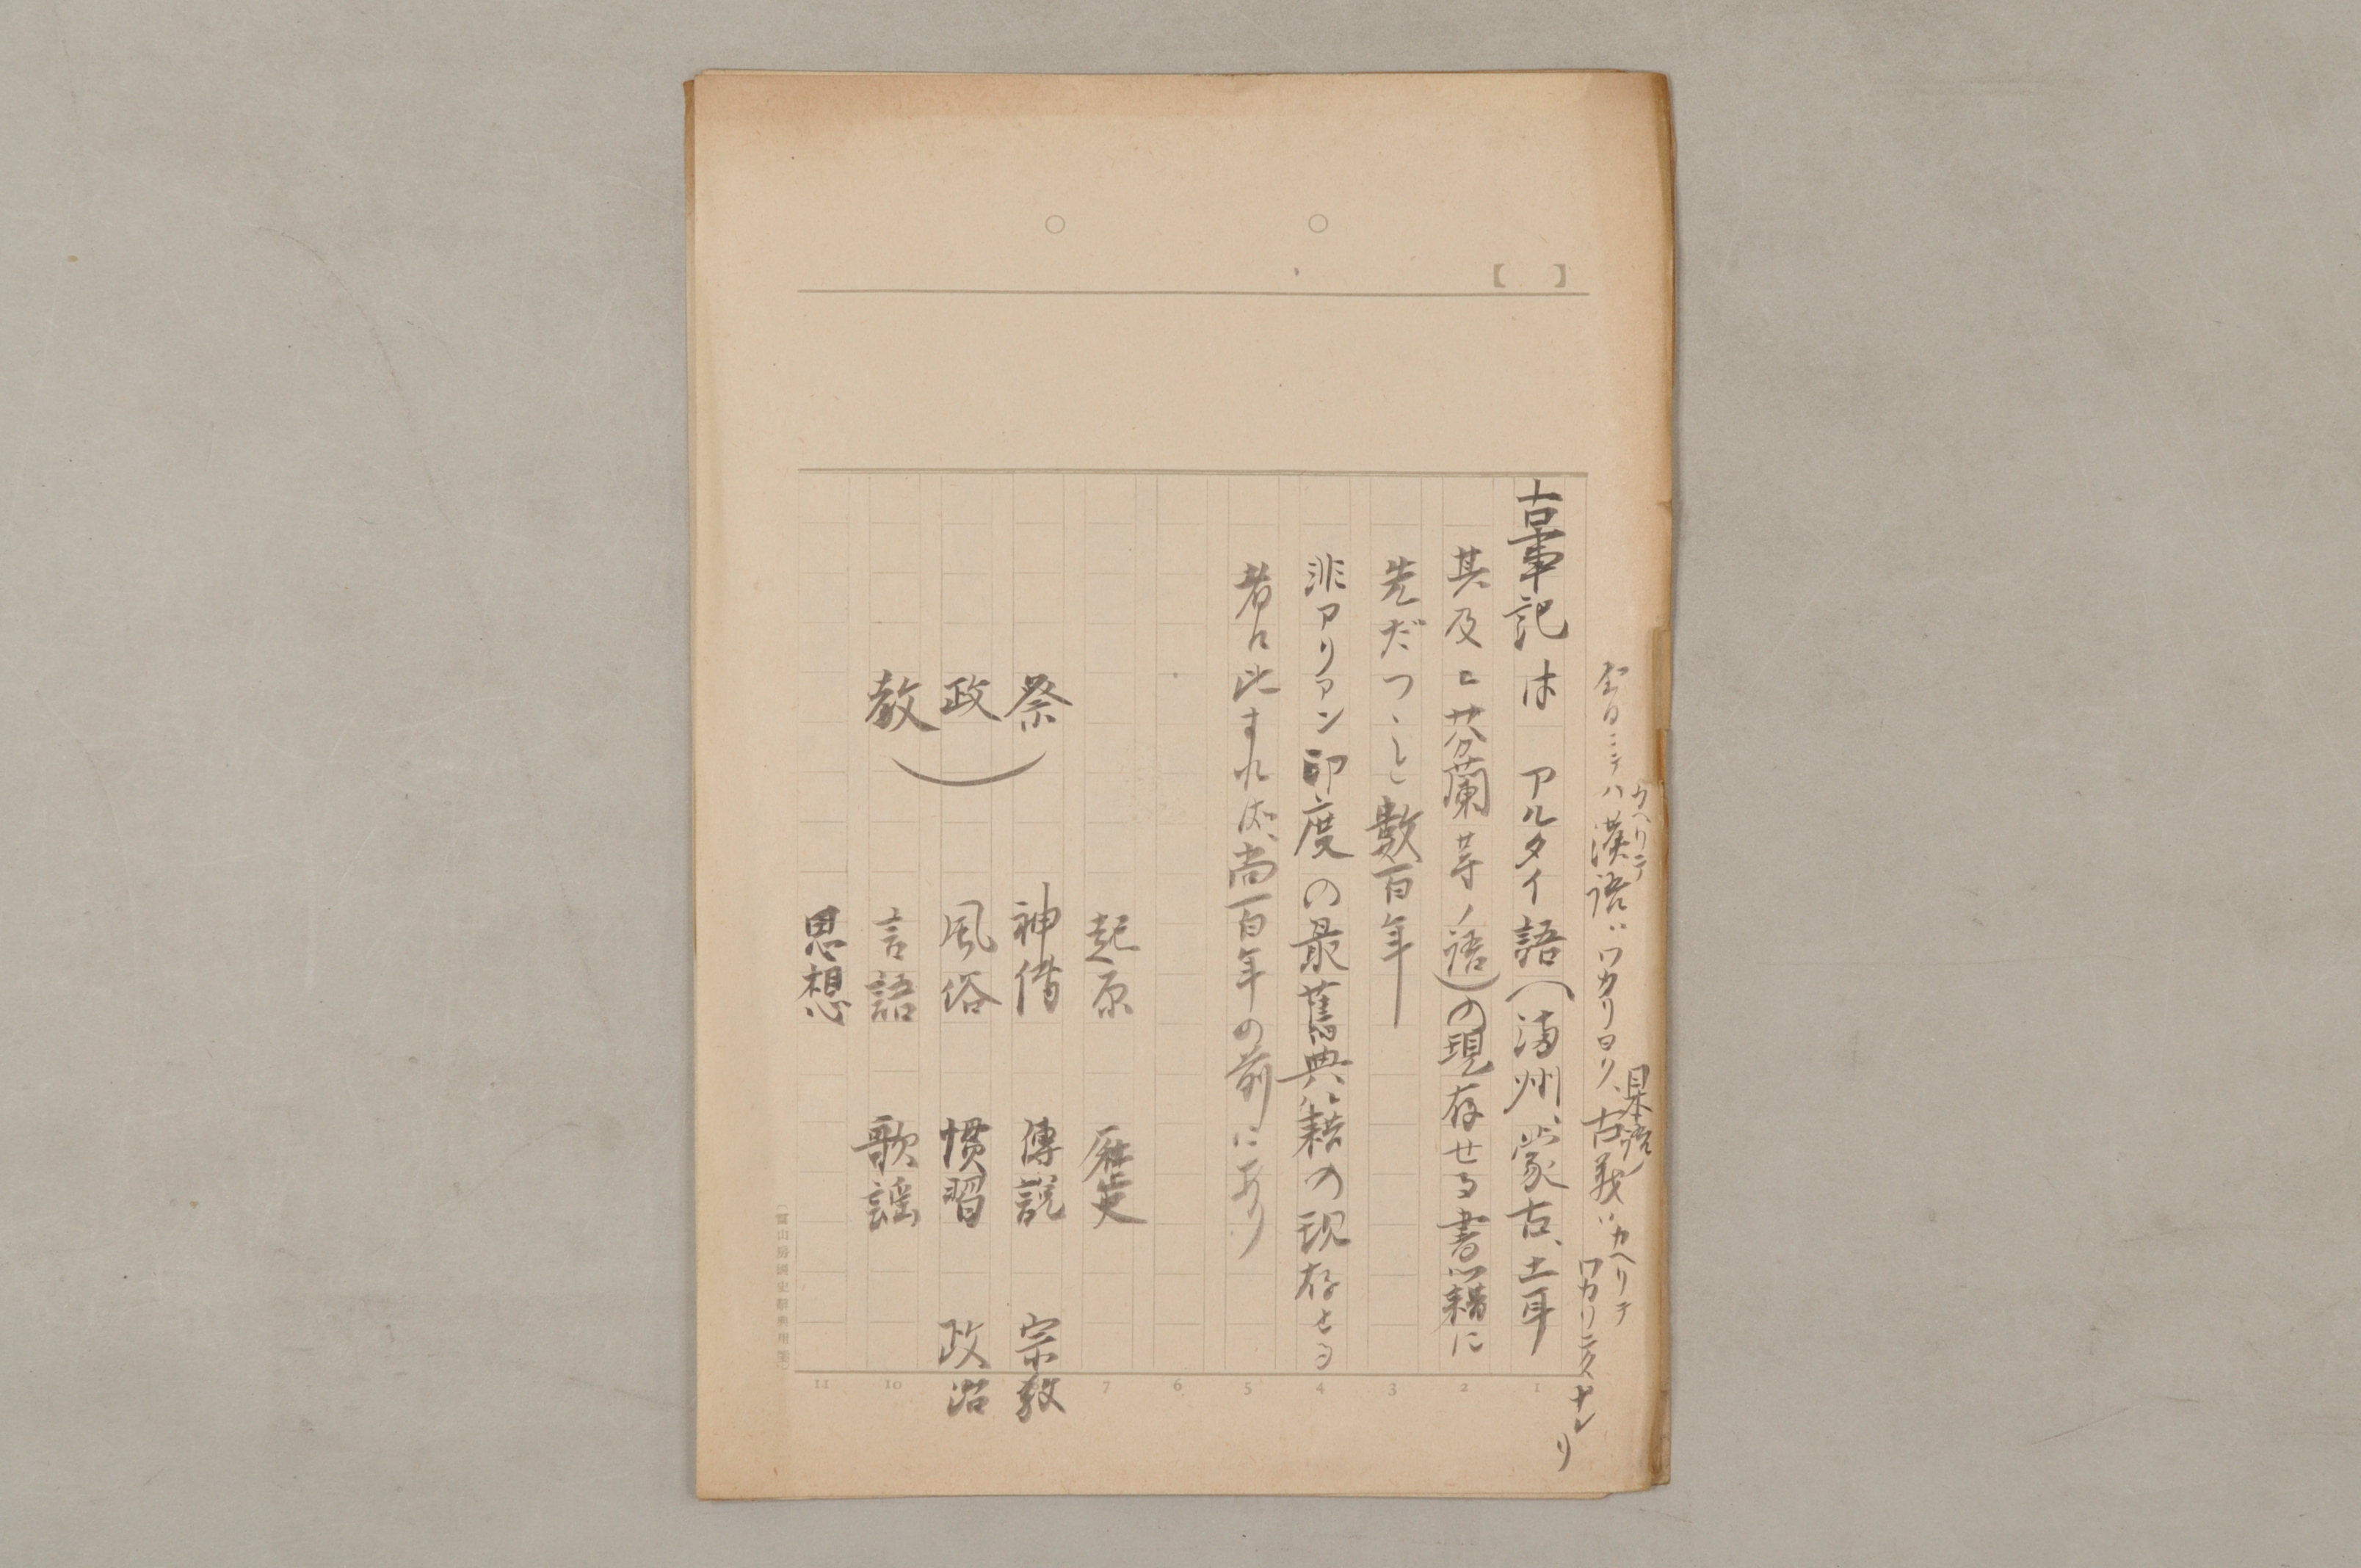 今日ニテハ漢語ハワカリヨリ、古義ハワカリニクヽナレリ
カヘリテ
日本語ノ
カヘリテ
【　】
古事記は　アルタイ語(満州、蒙古、土耳
其及ニ芬蘭等ノ語)の現存せる書籍に
先だつこと數百年
非アリアン印度の最舊典籍の現存せる
者に比すれば、尚一百年の前にあり
起原　歴史
祭　神借　傳説　宗教
政　風俗　慣習　政治
教　言語　歌謡
思想
1 2 3 4 5 6 7 10 11
(冨山房國史辭典用箋)